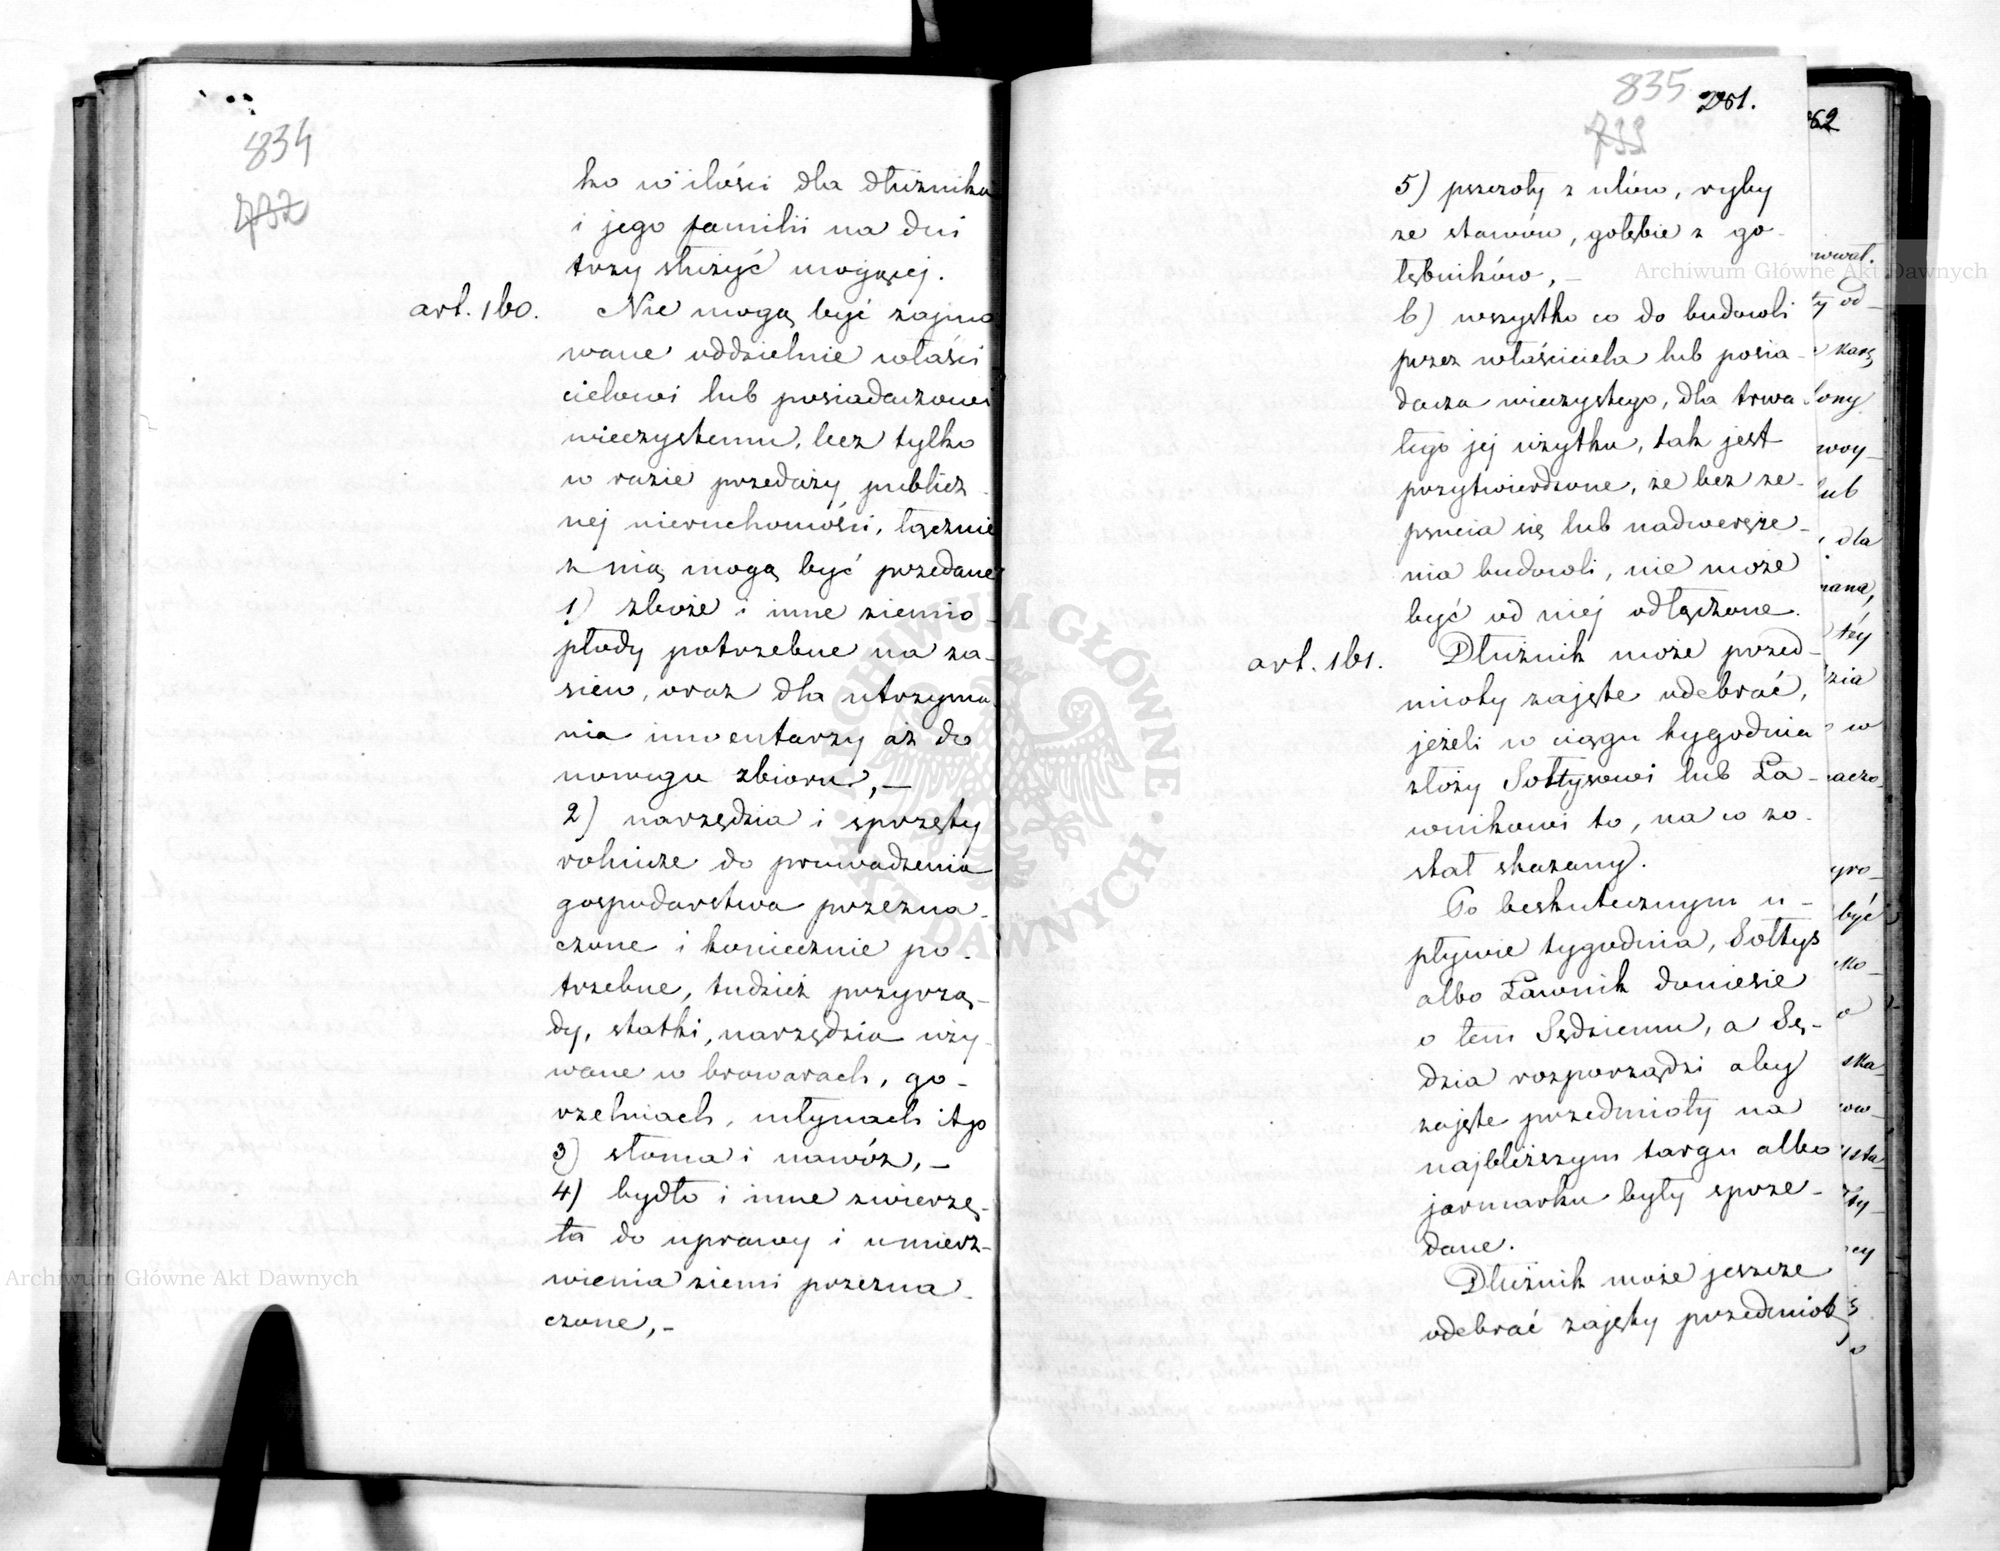 834
732
ko w ilości dla dłużnika
i jego familii na dni
trzy służyć mogącej.
art. 160. Nie mogą być zajmo
wane oddzielnie właści
cielowi lub posiadaczowi
wieczystemu, lecz tylko
w razie przedaży publicz-
nej nieruchomości, łącznie
z nią mogą być przedane
1) zboże i inne ziemio-
płody potrzebne na za-
siew, oraz dla utrzyma-
nia inwentarzy aż do
nowego zbioru, –
2) narzędzia i sprzęty
rolnicze do prowadzenia
gospodarstwa przezna-
czone i koniecznie po-
trzebne, tudzież przyrzą-
dy, statki, narzędzia uży-
wane w browarach, go-
rzelniach, młynach itp
3) słoma i nawóz, –
4) bydło i inne zwierzę-
ta do uprawy i umierz-
wienia ziemi przezna-
czone, –
835
251.
733
5) pszczoły z ulów, ryby
ze stawów, gołębie z go-
łębników, –
6) wszystko co do budowli
przez właściciela lub posia-
dacza wieczystego, dla trwa
łego jej użytku, tak jest
przytwierdzone, że bez ze-
psucia się lub nadweręże-
nia budowli, nie może
być od niej odłączone.
art. 161. Dłużnik może przed-
mioty zajęte odebrać,
jeżeli w ciągu tygodnia
złoży Sołtysowi lub Ła-
wnikowi to, na co zo-
stał skazany.
Po bezskutecznym u-
pływie tygodnia, Sołtys
albo Ławnik doniesie
o tem Sędziemu, a Sę-
dzia rozporządzi aby
zajęte przedmioty na
najbliższym targu albo
jarmarku były sprze-
dane.
Dłużnik może jeszcze
odebrać zajęty przedmiot
62
od
lub
dla
być
Archiwum Główne Akt Dawnych
Archiwum Główne Akt Dawnych
ARCHIWUM GŁÓWNE AKT DAWNYCH